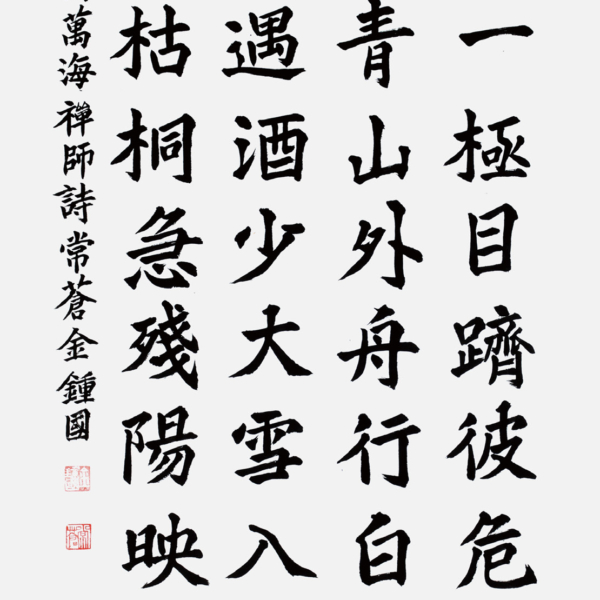 一極目躋彼危
青山外舟行白
遇酒少大雪入
枯桐急殘陽映
萬海禪師詩常蒼金鍾國